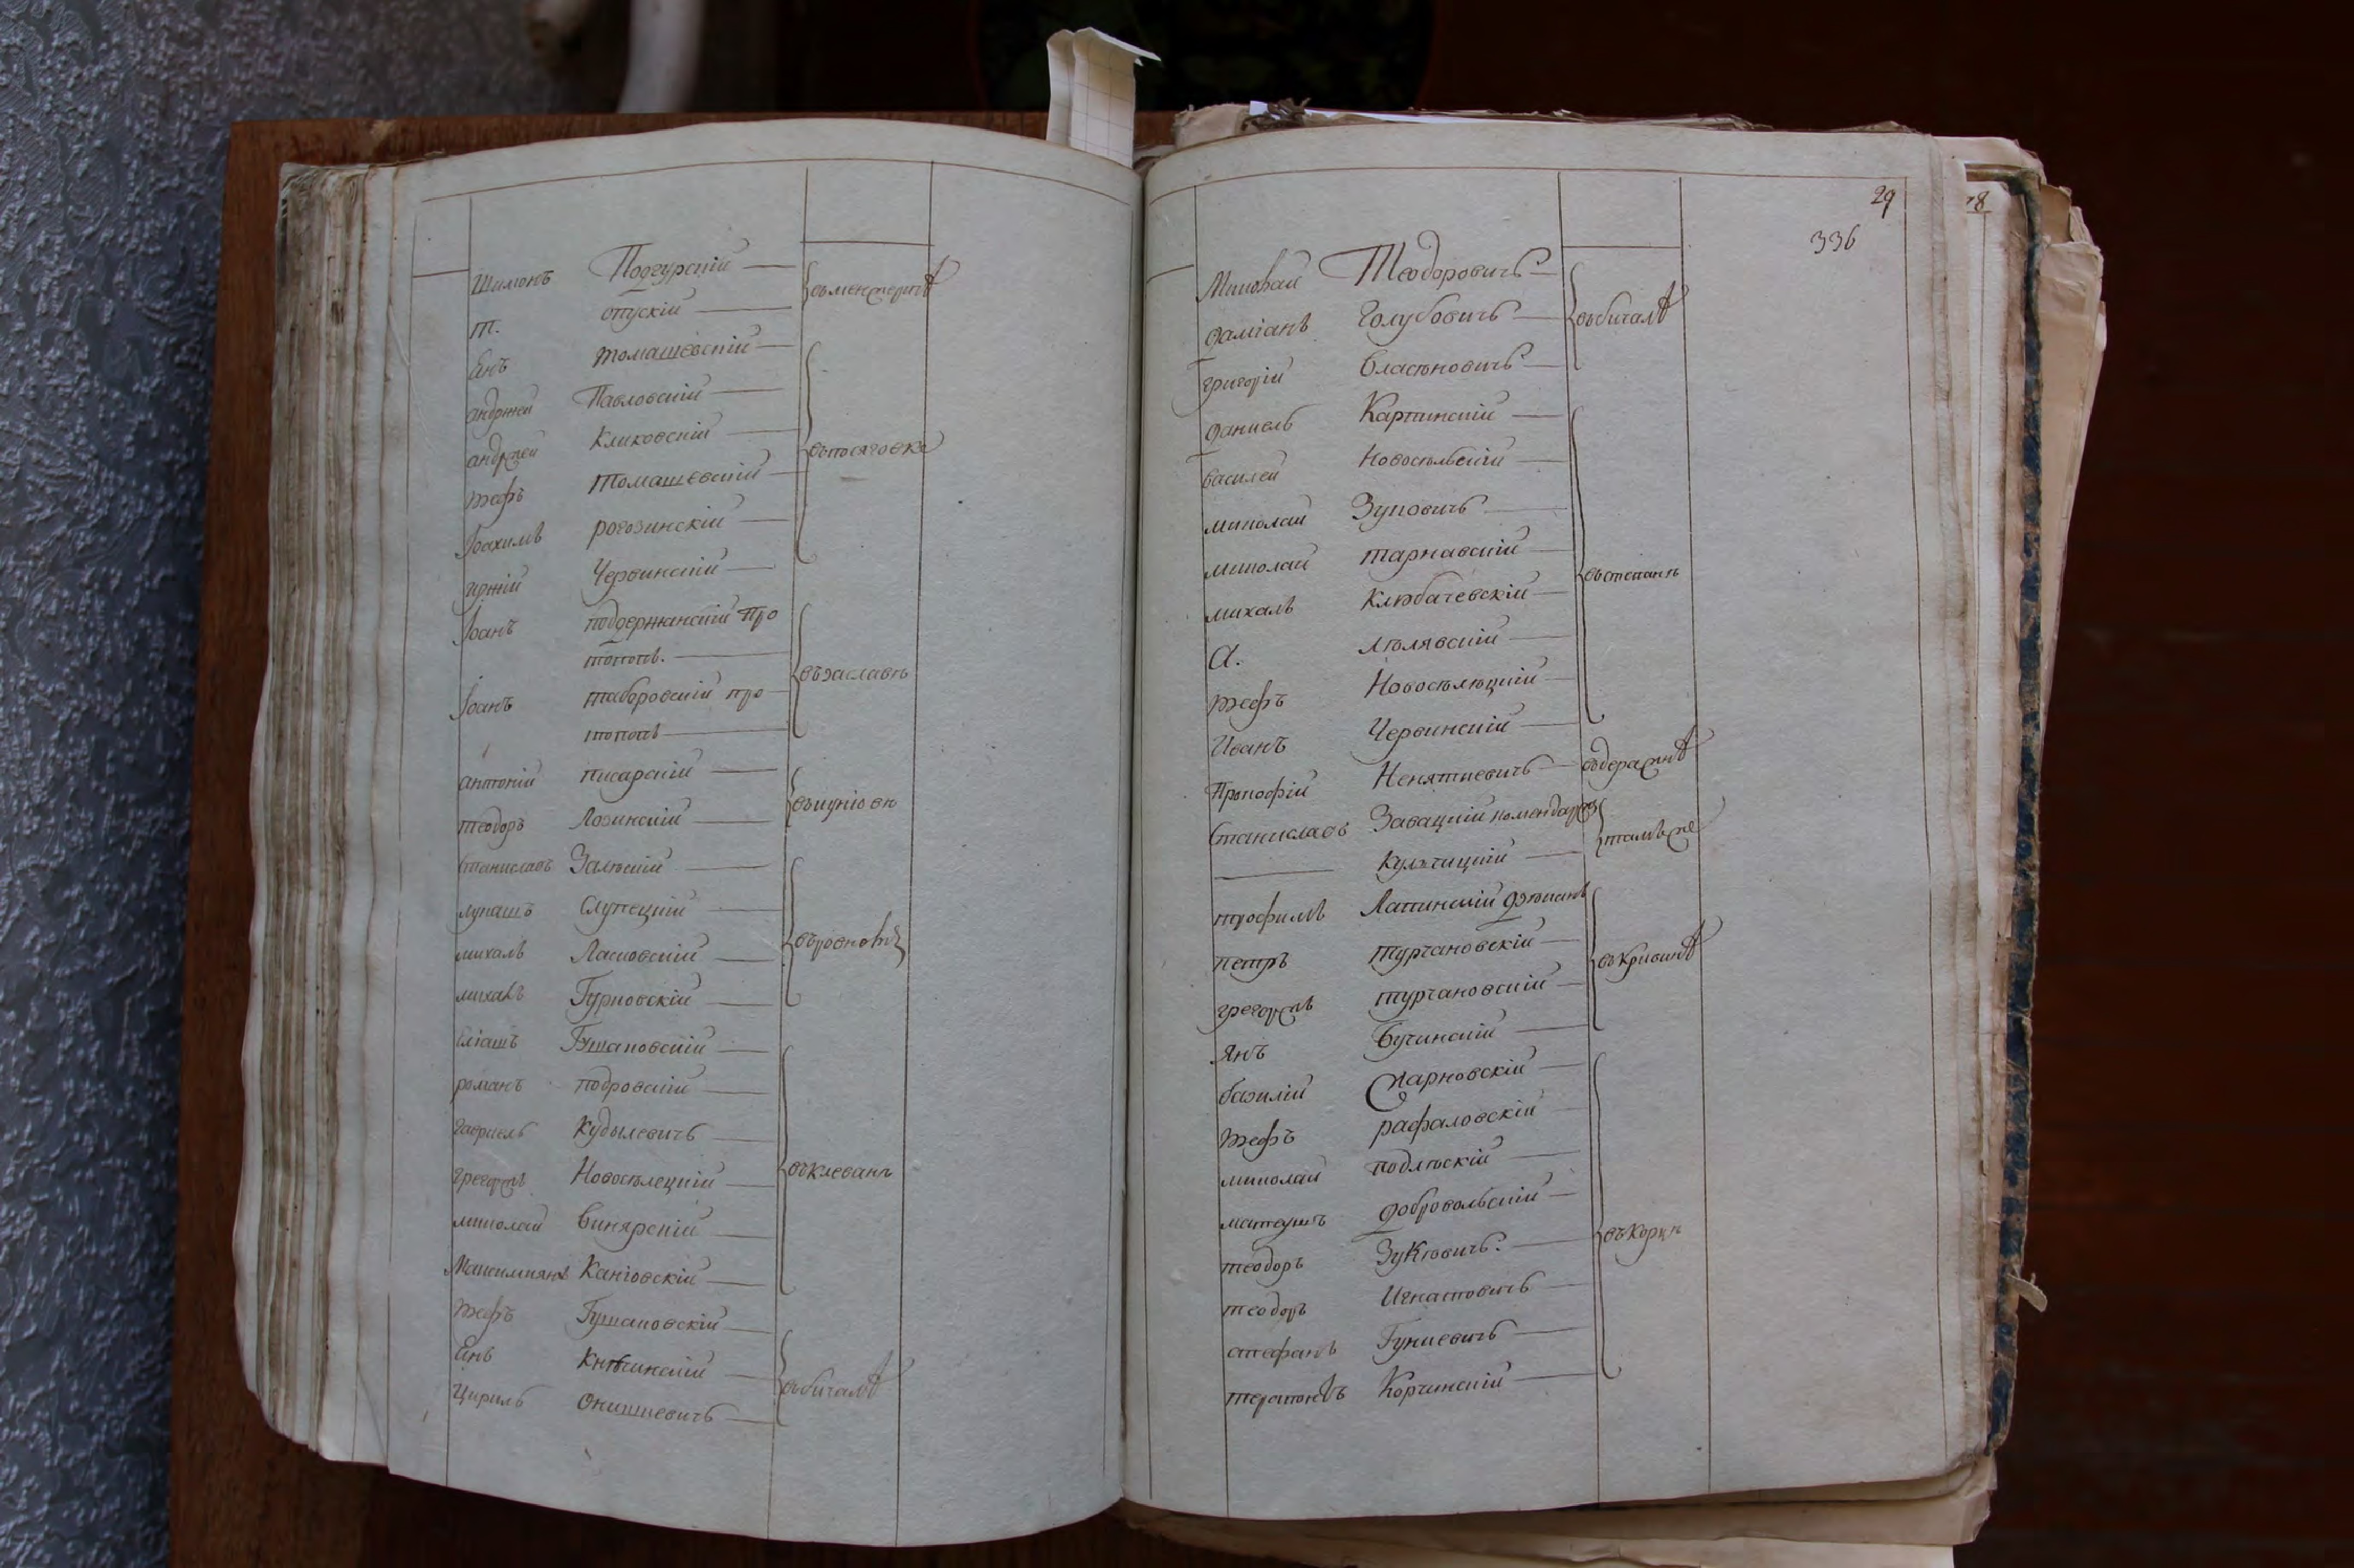 Шимонъ Подгурскій
въменджиріт
т. отускій
Янъ томашевскій
андржей Павловскій
андрей Кликовскій
въпосяговке
тефъ томашевскій
Іоахимъ рогозинскій
Юрій Червинскій
Іоанъ поддержанскій про
топопъ.
възаславѣ
Іоанъ таборовскій про
топопъ
антоній писарскій
теодоръ Лозинскій
Станиславъ Залѣскій
лукашъ Слупецкій
въровномъ
михалъ Ласковскій
михалъ Гурковскій
еліашъ Гушановскій
романъ подровскій
гавриель Кудылевичъ
въклеванѣ
миколай Винярскій
Максимилянъ Каніовскій
тефъ Гушановскій
Янъ Княгинскій
Цириль Онишкевичъ
въбичалѣ
29
336
Миколай Теодоровичъ
даміанъ Голубовичъ
въбичалѣ
григорій Власяновичъ
даниель Карпинскій
василей Новосѣльскій
миколай Зуковичъ
миколай тарнавскій
въстепанѣ
михалъ Клюбачевскій
А. Люлявскій
тефъ Новосѣлецкій
Иванъ Червинскій
Прокофій Некяткевичъ
въдеражнѣ
Станиславъ Завацкій комендарз
Кульчицкій
тамъже
трофимъ Лапинскій дзѣканъ
петръ турчановскій
въкривинѣ
турчановскій
Янъ Бучинскій
базилій Жарновскій
тефъ рафаловскій
миколай подлѣскій
матеушъ добровольскій
теодоръ Зукіовичъ.
въКорцѣ
теодоръ Игнатовичъ
стефанъ Гункевичъ
Корчинскій